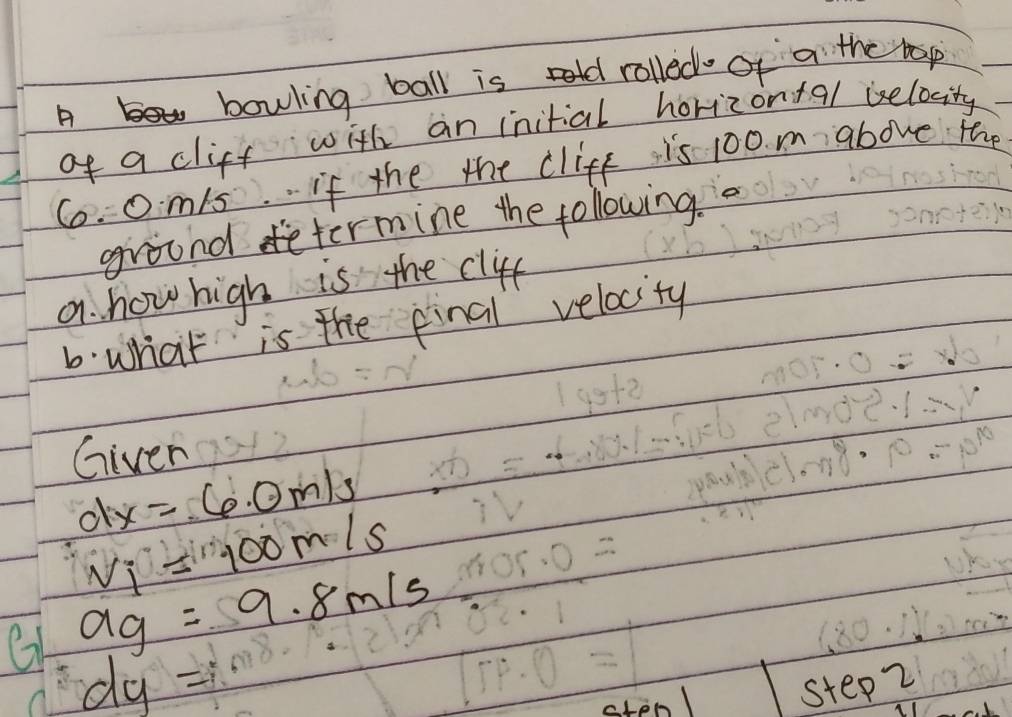 A bowling ball is rolled of a the top
of a cliff with an initial horizontal velocity
6.0 m/s. if the the cliff is 100 m above the
ground determine the following.
a. how high is the cliff
b. what is the final velocity
Given
dx = 6.0 m/s
Vi = 100 m/s
ag = 9.8 m/s
dy =
step 1
step 2